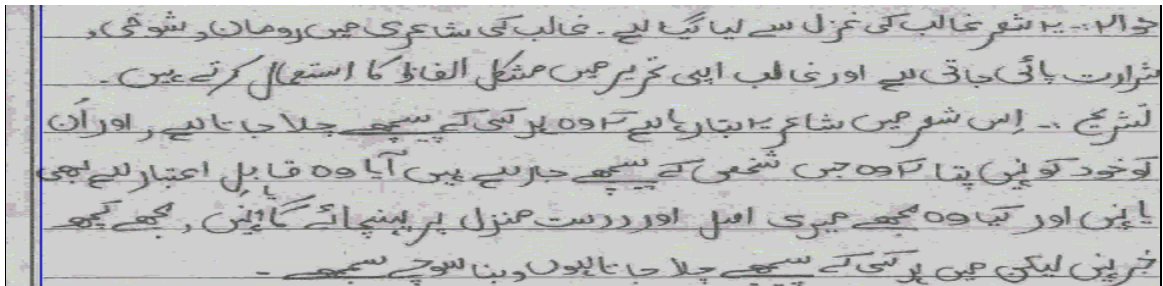 حوالہ:۔ یہ شعر غالب کی غزل سے لیا گیا ہے۔ غالب کی شاعری میں رومان، شوخی،
شرارت پائی جاتی ہے اور غالب اپنی تحریر میں مشکل الفاظ کا استعمال کرتے ہیں۔
تشریح :۔ اِس شعر میں شاعر یہ بتا رہا ہے کہ وہ ہر کسی کے پیچھے چلا جاتا ہے، اور اُن
کو خود کو نہیں پتا کہ وہ جس شخص کے پیچھے جا رہے ہیں آیا وہ قابلِ اعتبار ہے بھی
یا نہیں اور کیا وہ مجھے میری اصل اور درست منزل پر پہنچائے گا یا نہیں، مجھے کچھ
خبر نہیں لیکن میں ہر کسی کے پیچھے چلا جاتا ہوں، بنا سوچے سمجھے۔